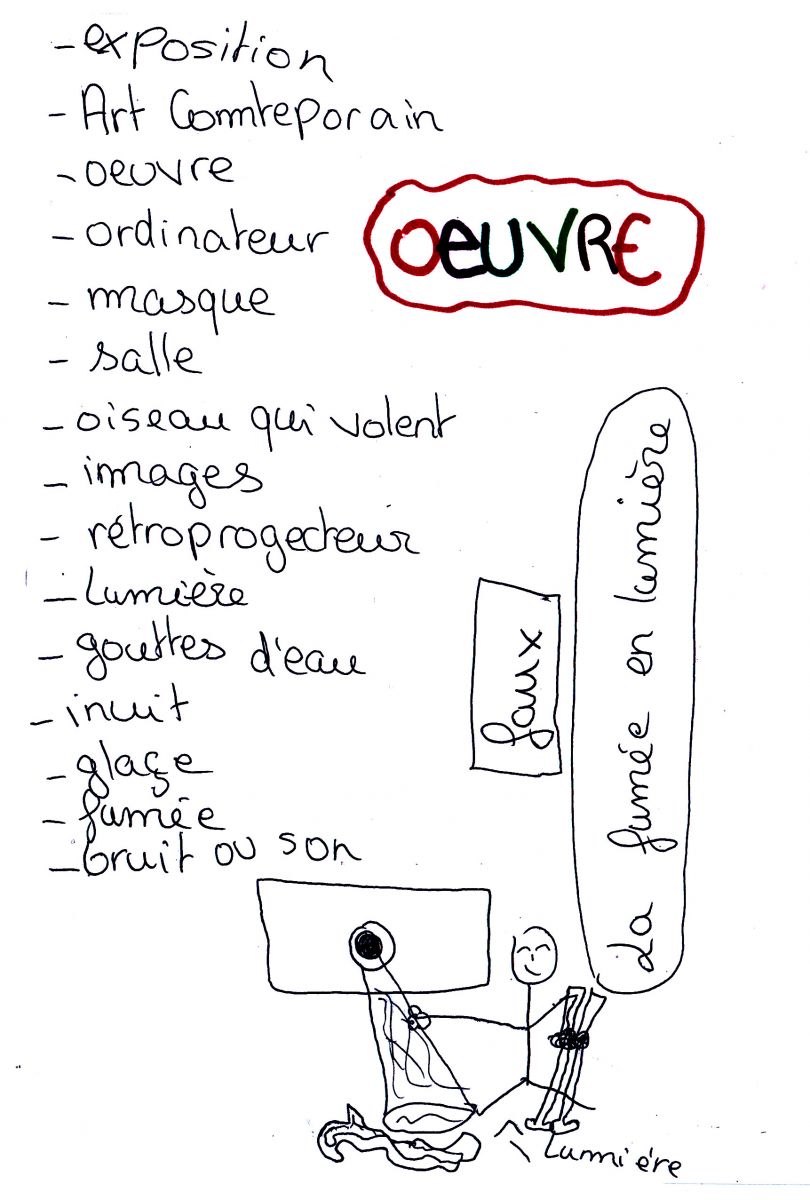 - exposition
- Art Comteporain
- oeuvre
- ordinateur
OEUVRE
- masque
- salle
- oiseau qui volent
- images
- rétroprogecteur
- Lumière
- gouttes d'eau
- inuit
- glaçe
- fumée
- bruit ou son
faux
La fumée en lumière
Lumière